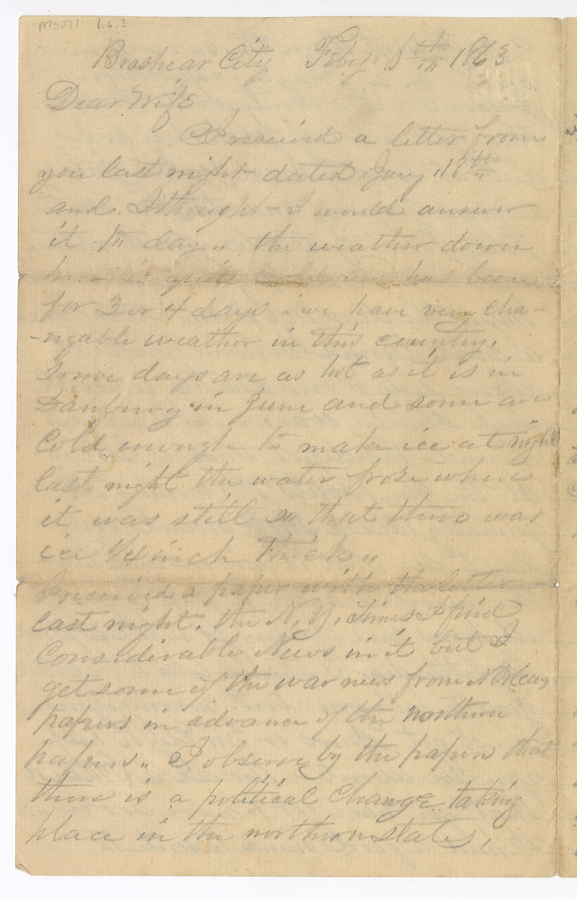 MS071 1.6.3
Brashear City Feby 5th 1863
Dear Wife
I received a letter from
you last night dated Jany 18th
and I thought I would answer
it to day " the weather down
here is quite cold and has been
for 3 or 4 days . we have very cha-
-ngable weather in this country.
Some days are as hot as it is in
Danbury in June and some are
Cold enough to make ice at night
last night the water froze where
it was still so that there was
ice 1/4 inch thick "
I received a paper with the letter
last night. the N. Y. Times I find
Considerable News in it but I
get some of the war news from N Orleans
papers in advance of the northern
papers " I observe by the papers that
there is a political Change taking
place in the northern states,